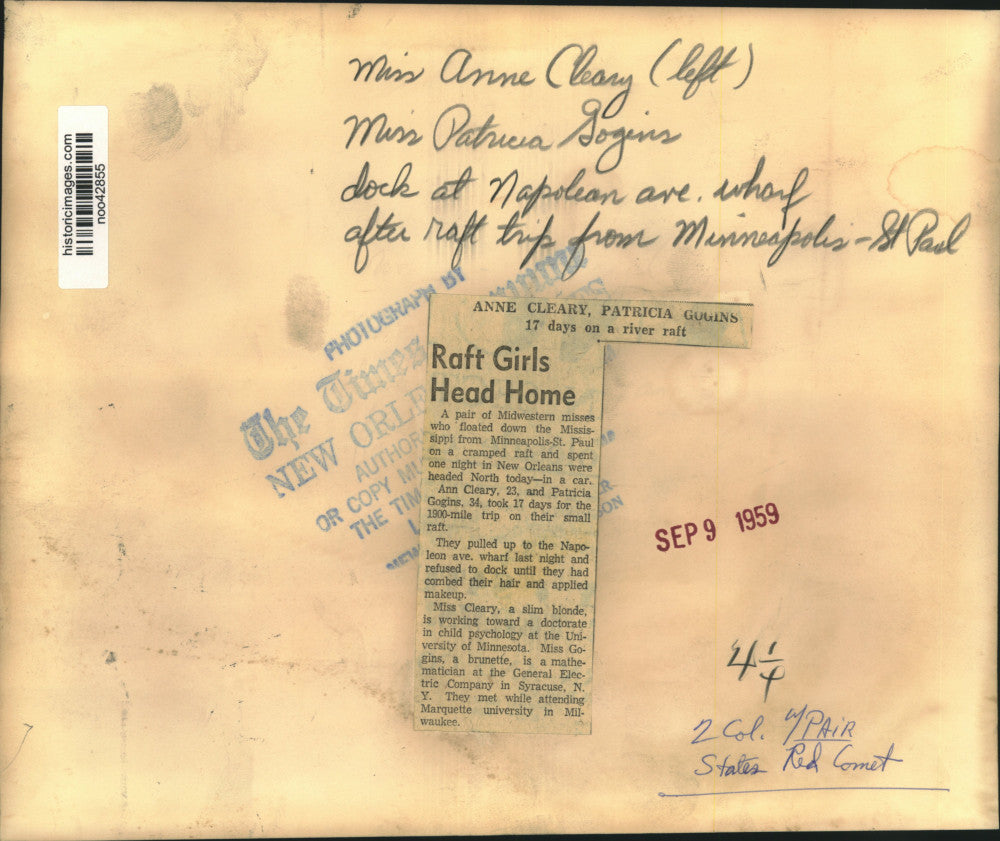 Miss Anne Cleary (left)
Miss Patricia Gogins
dock at Napolean ave. wharf
after raft trip from Minneapolis - St Paul
historicimages.com
noo42855
PHOTOGRAPH BY
The Times
NEW ORLE
AUTHOR
OR COPY
THE TIM
ANNE CLEARY, PATRICIA GOGINS
17 days on a river raft
Raft Girls
Head Home
A pair of Midwestern misses
who floated down the Missis-
sippi from Minneapolis-St. Paul
on a cramped raft and spent
one night in New Orleans were
headed North today—in a car.
Ann Cleary, 23, and Patricia
Gogins, 34, took 17 days for the
1900-mile trip on their small
raft.
They pulled up to the Napo-
leon ave. wharf last night and
refused to dock until they had
combed their hair and applied
makeup.
Miss Cleary, a slim blonde,
is working toward a doctorate
in child psychology at the Uni-
versity of Minnesota. Miss Go-
gins, a brunette, is a mathe-
matician at the General Elec-
tric Company in Syracuse, N.
Y. They met while attending
Marquette university in Mil-
waukee.
SEP 9 1959
4 1/4
2 Col. w/PAIR
States Red Comet